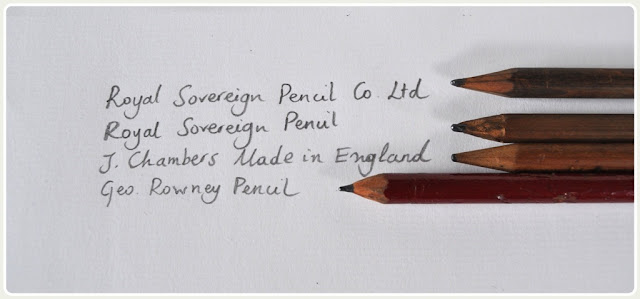 Royal Sovereign Pencil Co. Ltd
Royal Sovereign Pencil
J. Chambers Made in England
Geo. Rowney Pencil